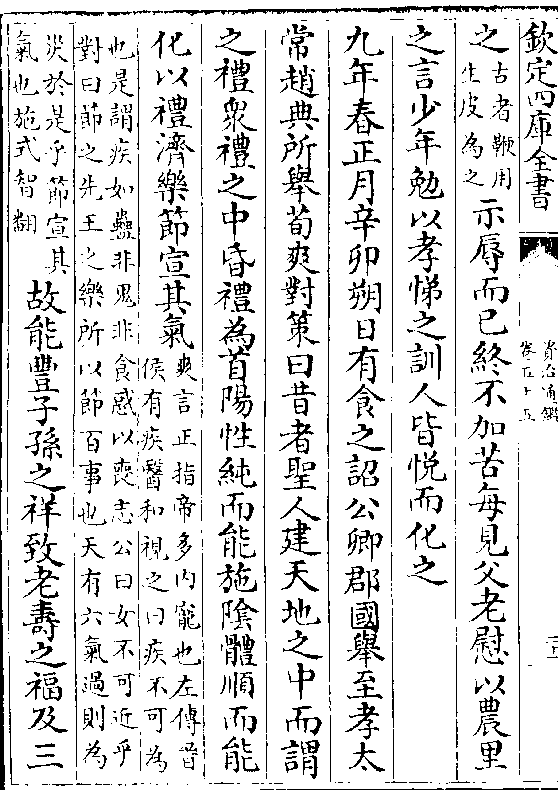 欽定四庫全書
資治通鑑
卷五十五
之古者鞭用生皮為之示辱而已終不加苦每見父老慰以農里
之言少年勉以孝悌之訓人皆悅而化之
九年春正月辛卯朔日有食之詔公卿郡國舉至孝太
常趙典所舉荀爽對策曰昔者聖人建天地之中而謂
之禮衆禮之中昏禮為首陽性純而能施陰體順而能
化以禮濟樂節宣其氣爽言正指帝多內寵也左傳晉侯有疾醫和視之曰疾不可為
也是謂疾如蠱非鬼非食惑以喪志公曰女不可近乎
對曰節之先王之樂所以節百事也天有六氣過則為
災於是乎節宣其氣也施式智翻故能豐子孫之祥致老壽之福及三